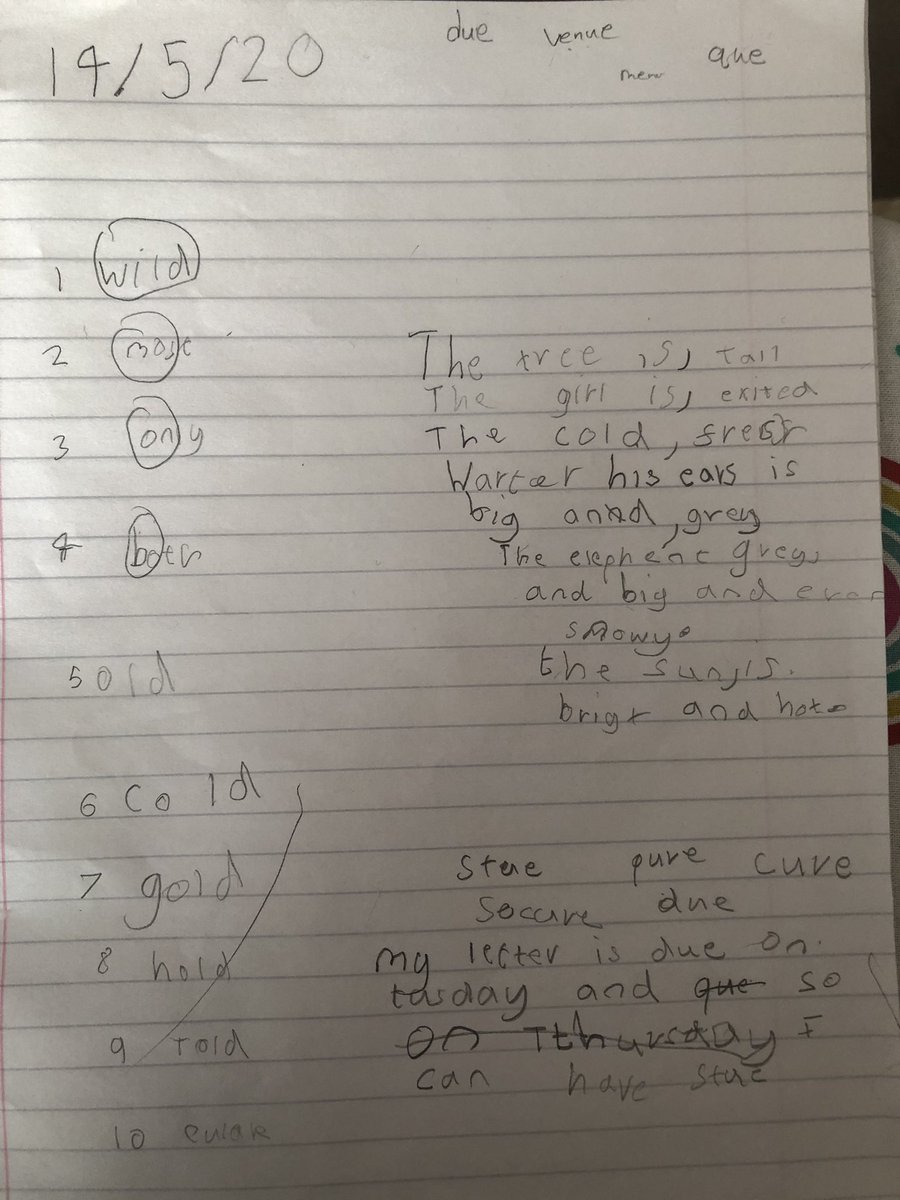 due venue
14/5/20
menu que
1 wild
2 most
The tree is, tall
The girl is, exited
3 only
The cold,
Warter his ears is
big annd, grey
4 both
The elephent grey,
and big and even
snowy.
5 old
the sun, is.
brigt and hot.
6 cold
7 gold
stue pure cure
socure due
8 hold
my letter is due on.
tusday and que so
9 told
on Tthursday I
can have stue
10